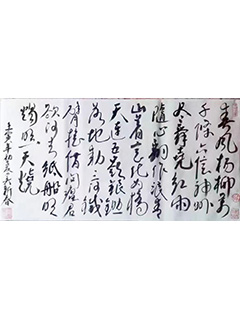 春风杨柳万
千条六亿神州
尽舜尧红雨
随心翻作浪青
山着意化为桥
天连五岭银锄
落地动三河铁
臂摇借问瘟君
欲何往纸船明
烛照天烧